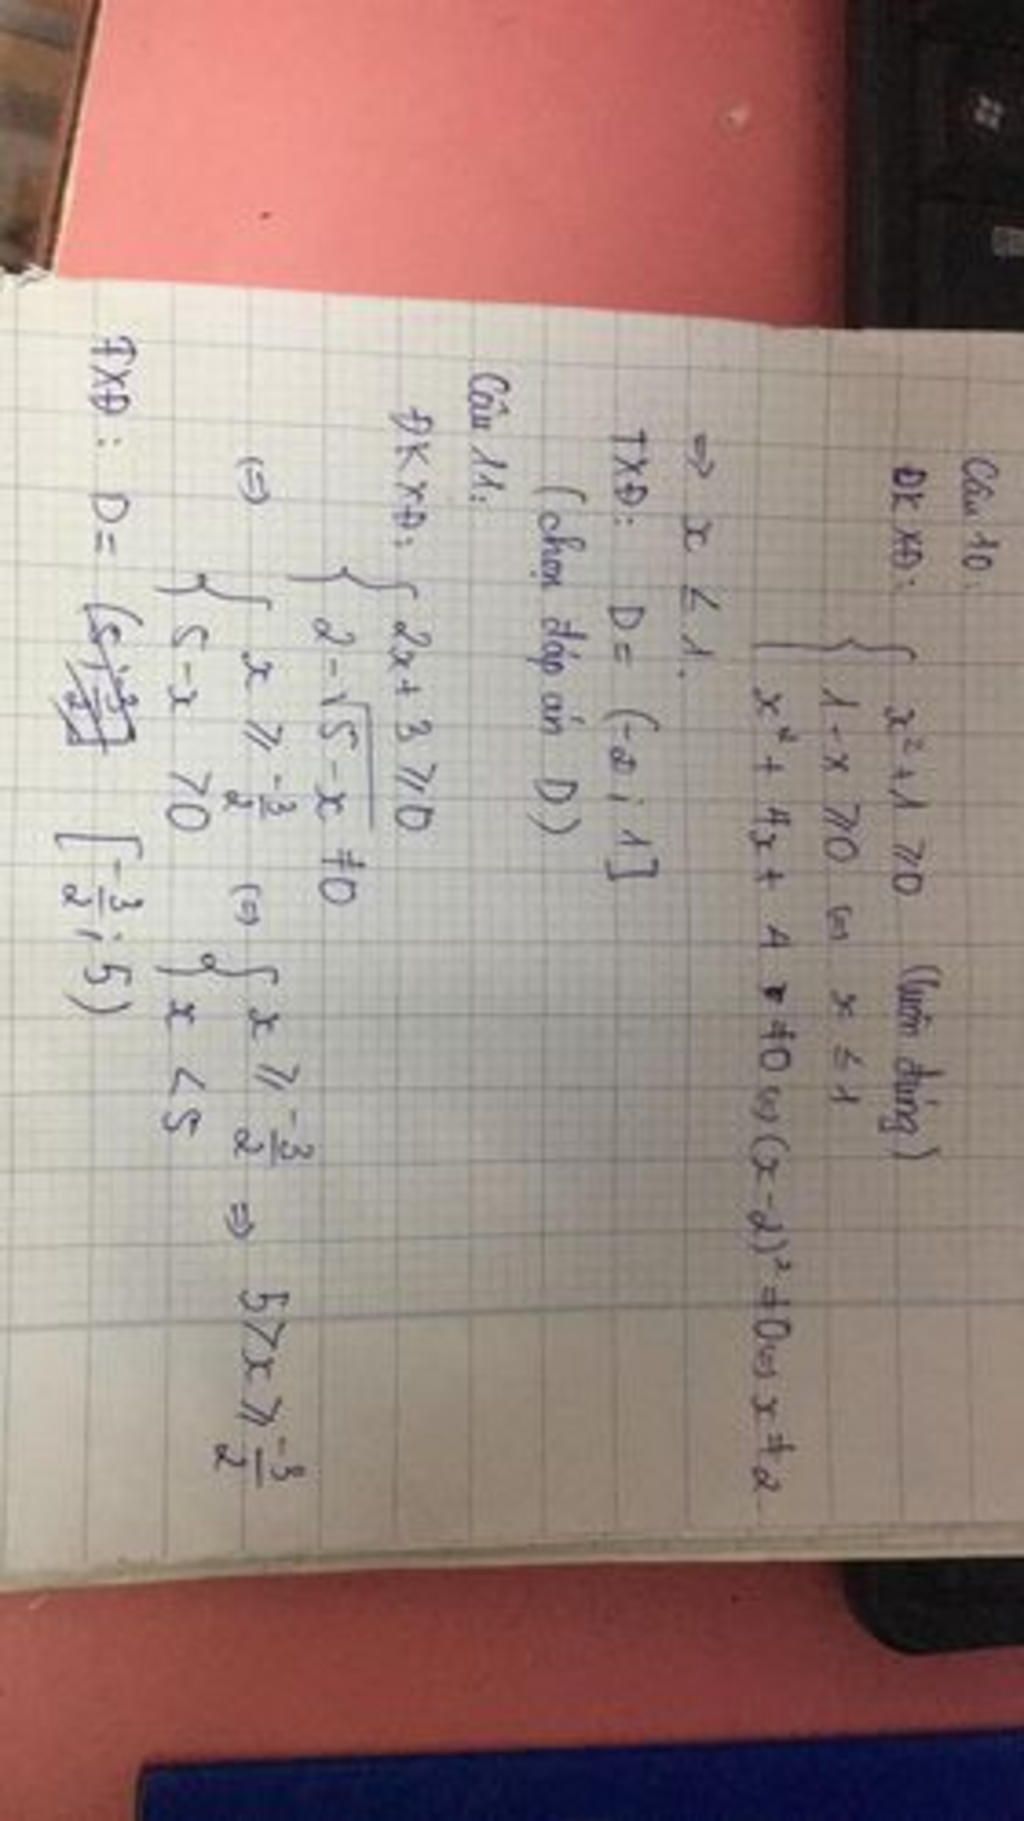 Câu 10.
ĐKXĐ: { x²+1 ⩾0 (luôn đúng)
1-x ⩾0 ⇔ x ≤ 1
x² + 4x + 4 ≠0 ⇔ (x-2)² ≠0 ⇔ x ≠2
⇒ x ≤ 1.
TXĐ: D= (-∞; 1]
(chọn đáp án D)
Câu 11:
ĐKXĐ: { 2x+3 ⩾0
2-√5-x ≠0
⇔ { x ⩾ -3/2 ⇔ { x ⩾ -3/2 ⇒ 5>x ⩾ -3/2
5-x >0 x <5
TXĐ: D= [-3/2; 5)